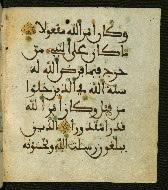 وكان امر الله مفعولا
ما كان على النبي من
حرج فيما فرض الله له
سنة الله في الذين خلوا
من قبل وكان امر الله
قدرا مقدورا الذين
يبلغون رسلت الله ويخشونه